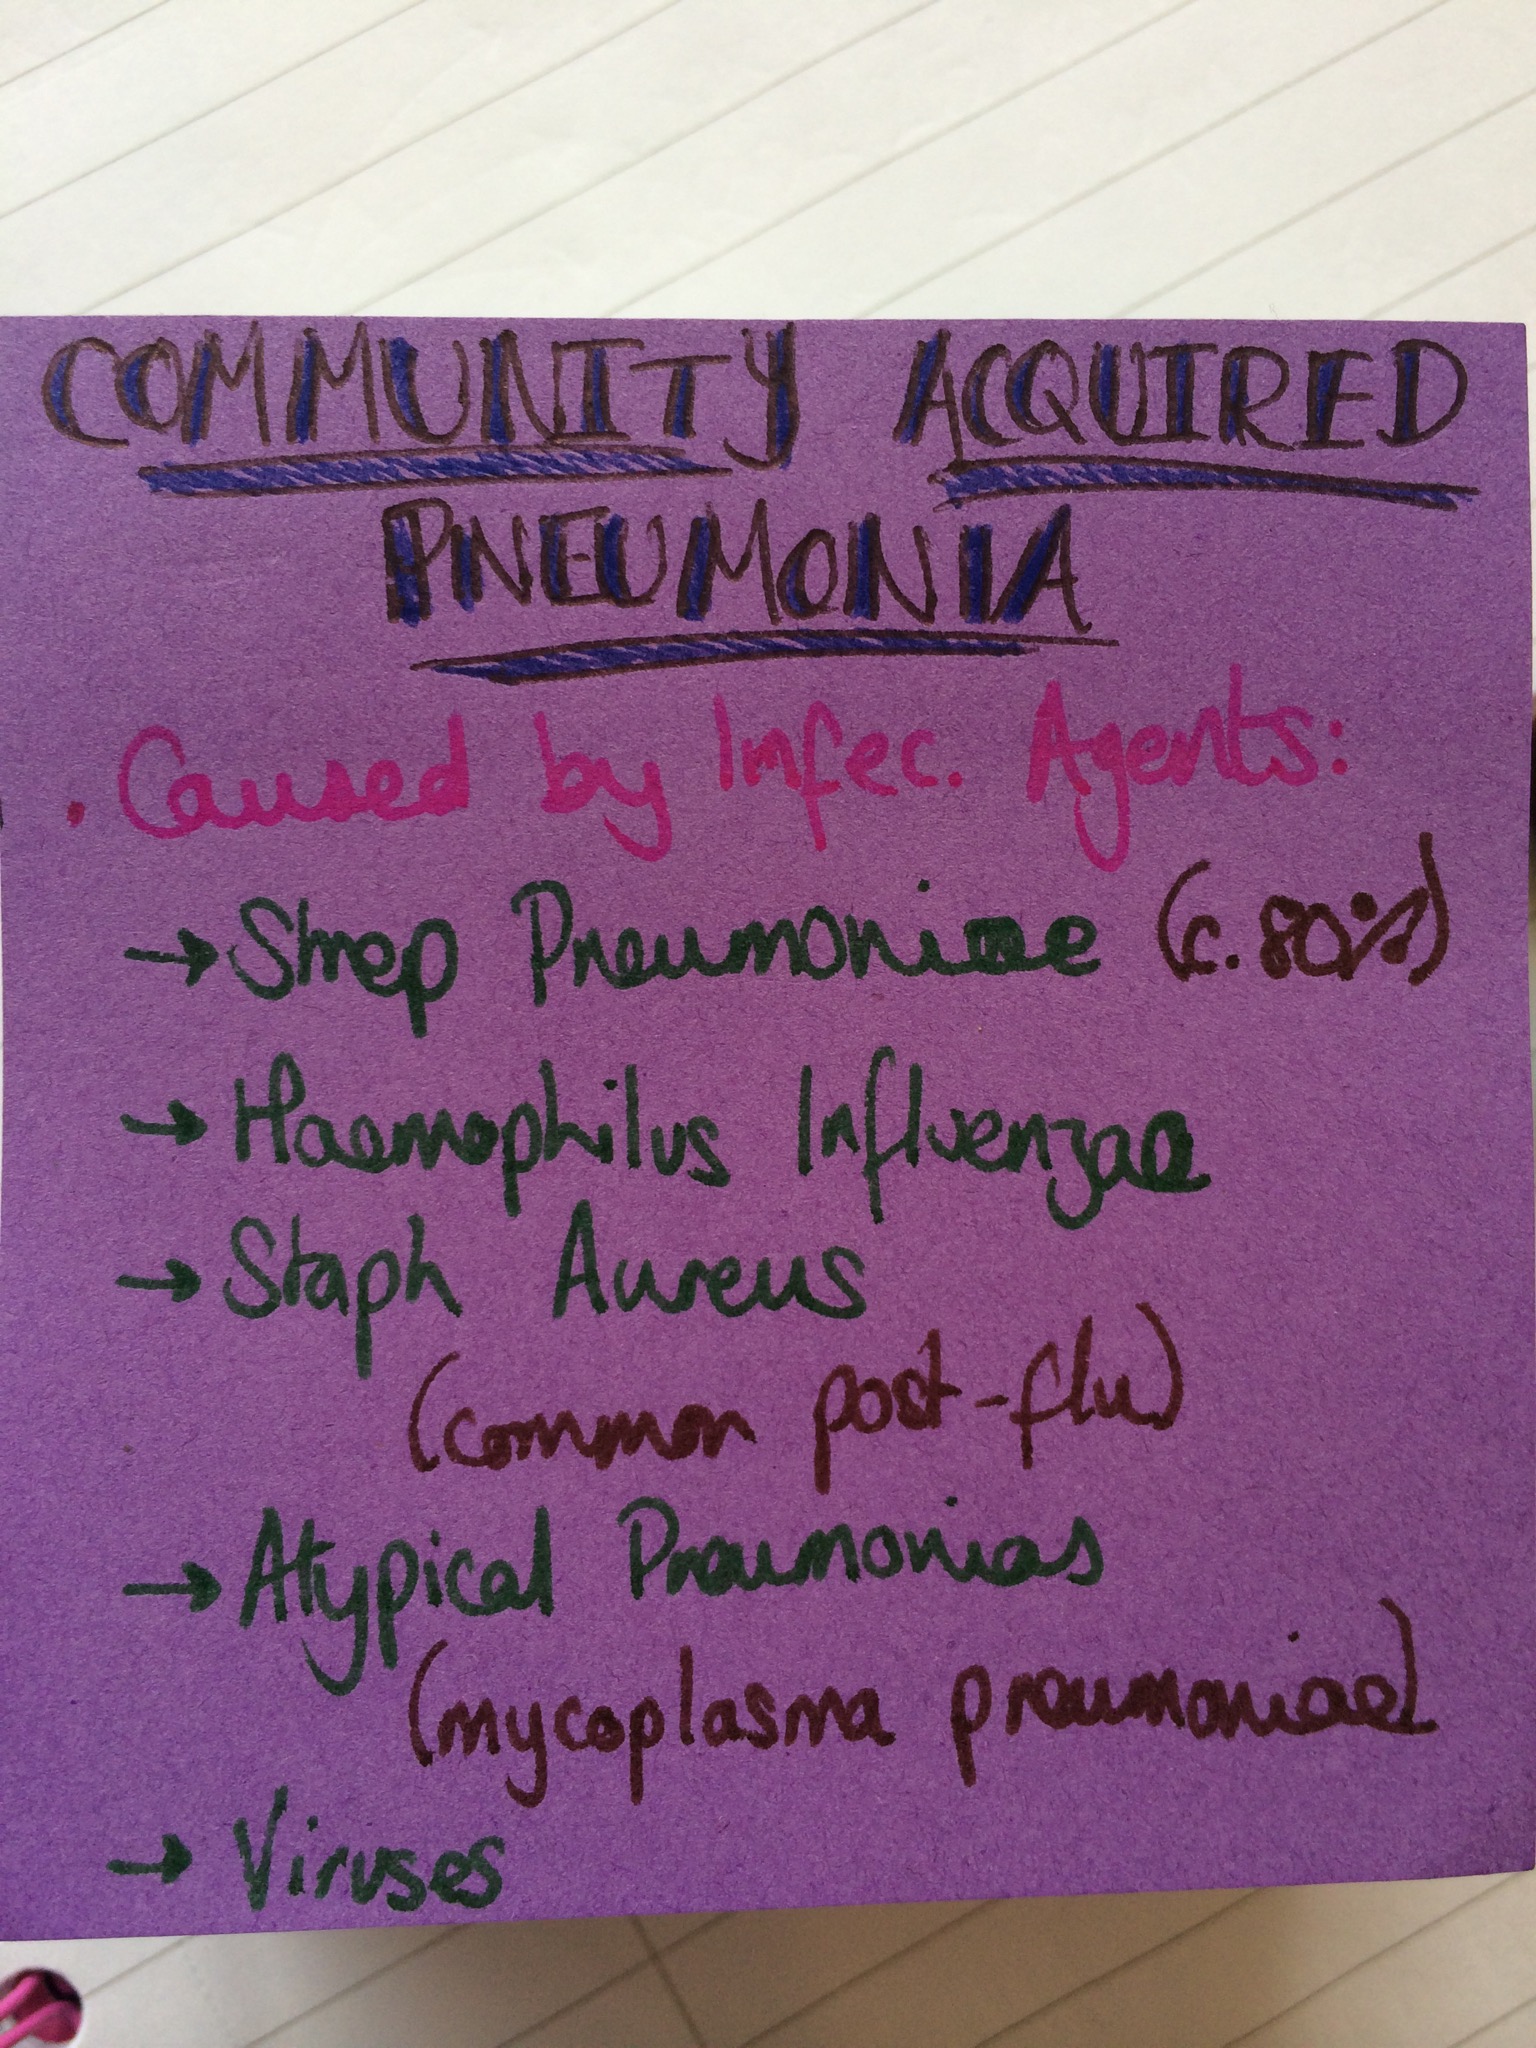 COMMUNITY ACQUIRED
PNEUMONIA
. Caused by Infec. Agents:
→ Strep Pneumoniae (c. 80%)
→ Haemophilus Influenzae
→ Staph Aureus
(common post-flu)
→ Atypical Pneumonias
(mycoplasma pneumoniae)
→ Viruses